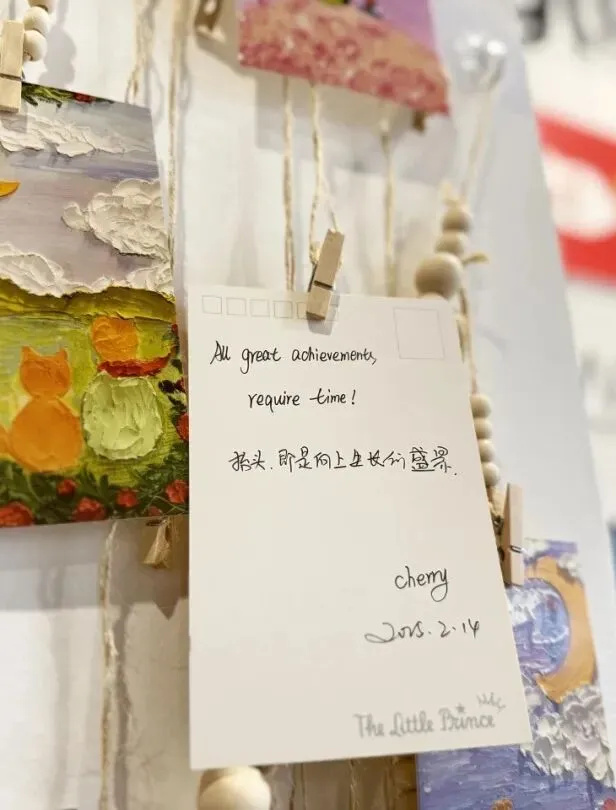 All great achievements,
require time!
抬头,即是向上生长的盛景.
cherry
2025.2.14
The Little Prince